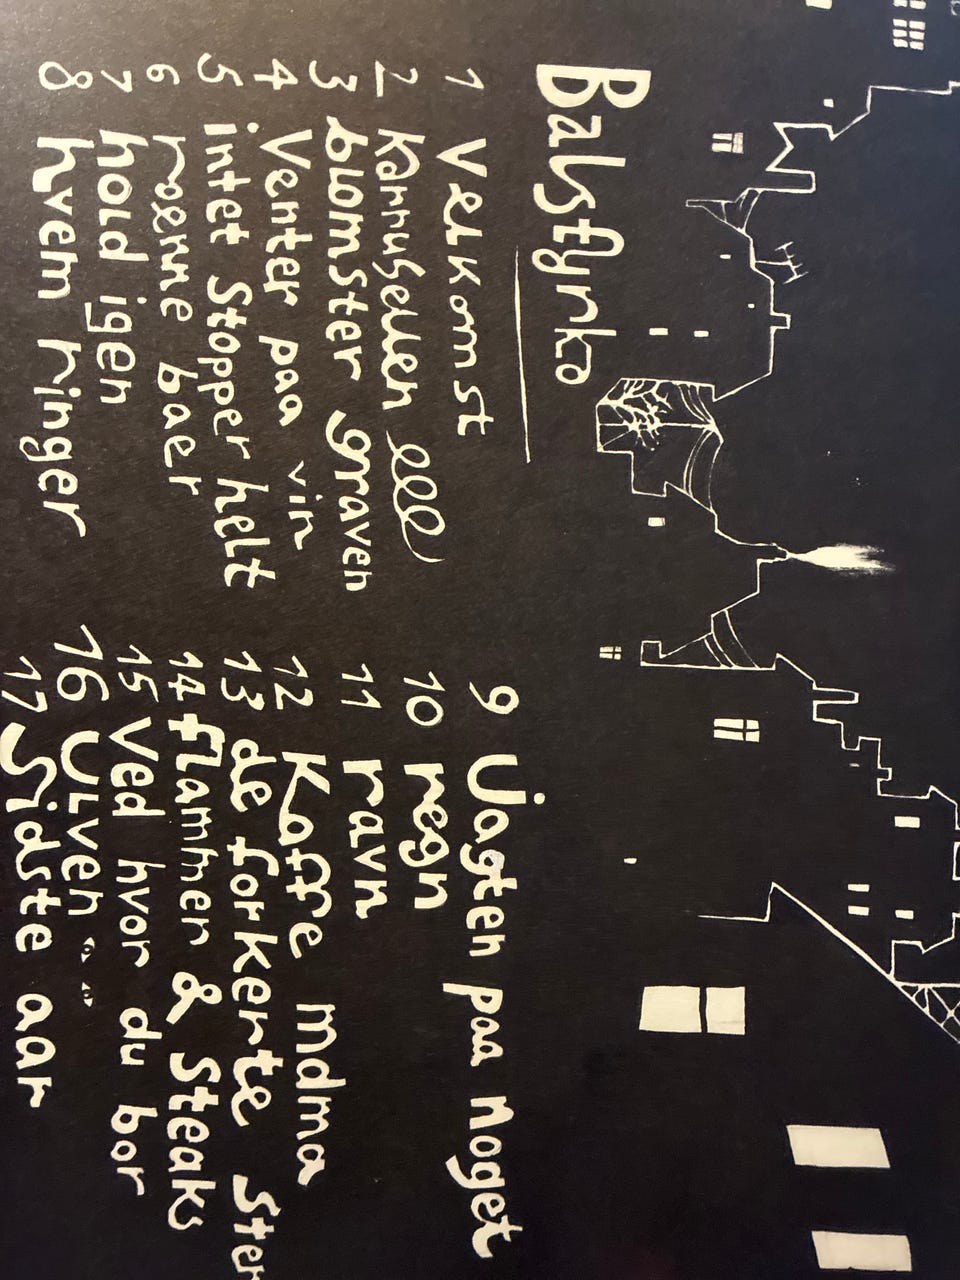 Balstyrko
1 Velkomst
2 Karrusellen elle
3 blomster graven
4 Venter paa vin
5 intet stopper helt
6 roenne baer
7 hold igen
8 hvem ringer
9 Jagten paa noget
10 regn
11 ravn
12 Kaffe mdma
13 de forkerte ster
14 flammer & Steaks
15 Ved hvor du bor
16 Ulven
17 Sidste aar